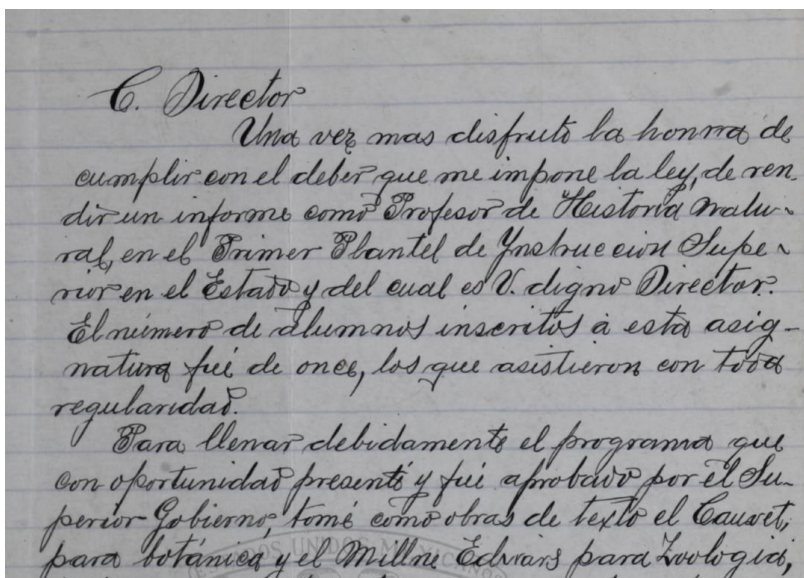 C. Director
Una vez mas disfruto la honrra de
cumplir con el deber que me impone la ley, de ren-
dir un informe como Profesor de Historia Natu-
ral, en el Primer Plantel de Ynstruccion Supe-
rior en el Estado y del cual es V. digno Director.
El número de alumnos inscritos á esta asig-
natura fué de once, los que asistieron con toda
regularidad.
Para llenar debidamente el programa que
con oportunidad presenté y fué aprobado por el Su-
perior Gobierno, tomé como obras de texto el Cauvet,
para botánica y el Millne Edwars para Zoologia,
UNIDOS MEXICANOS